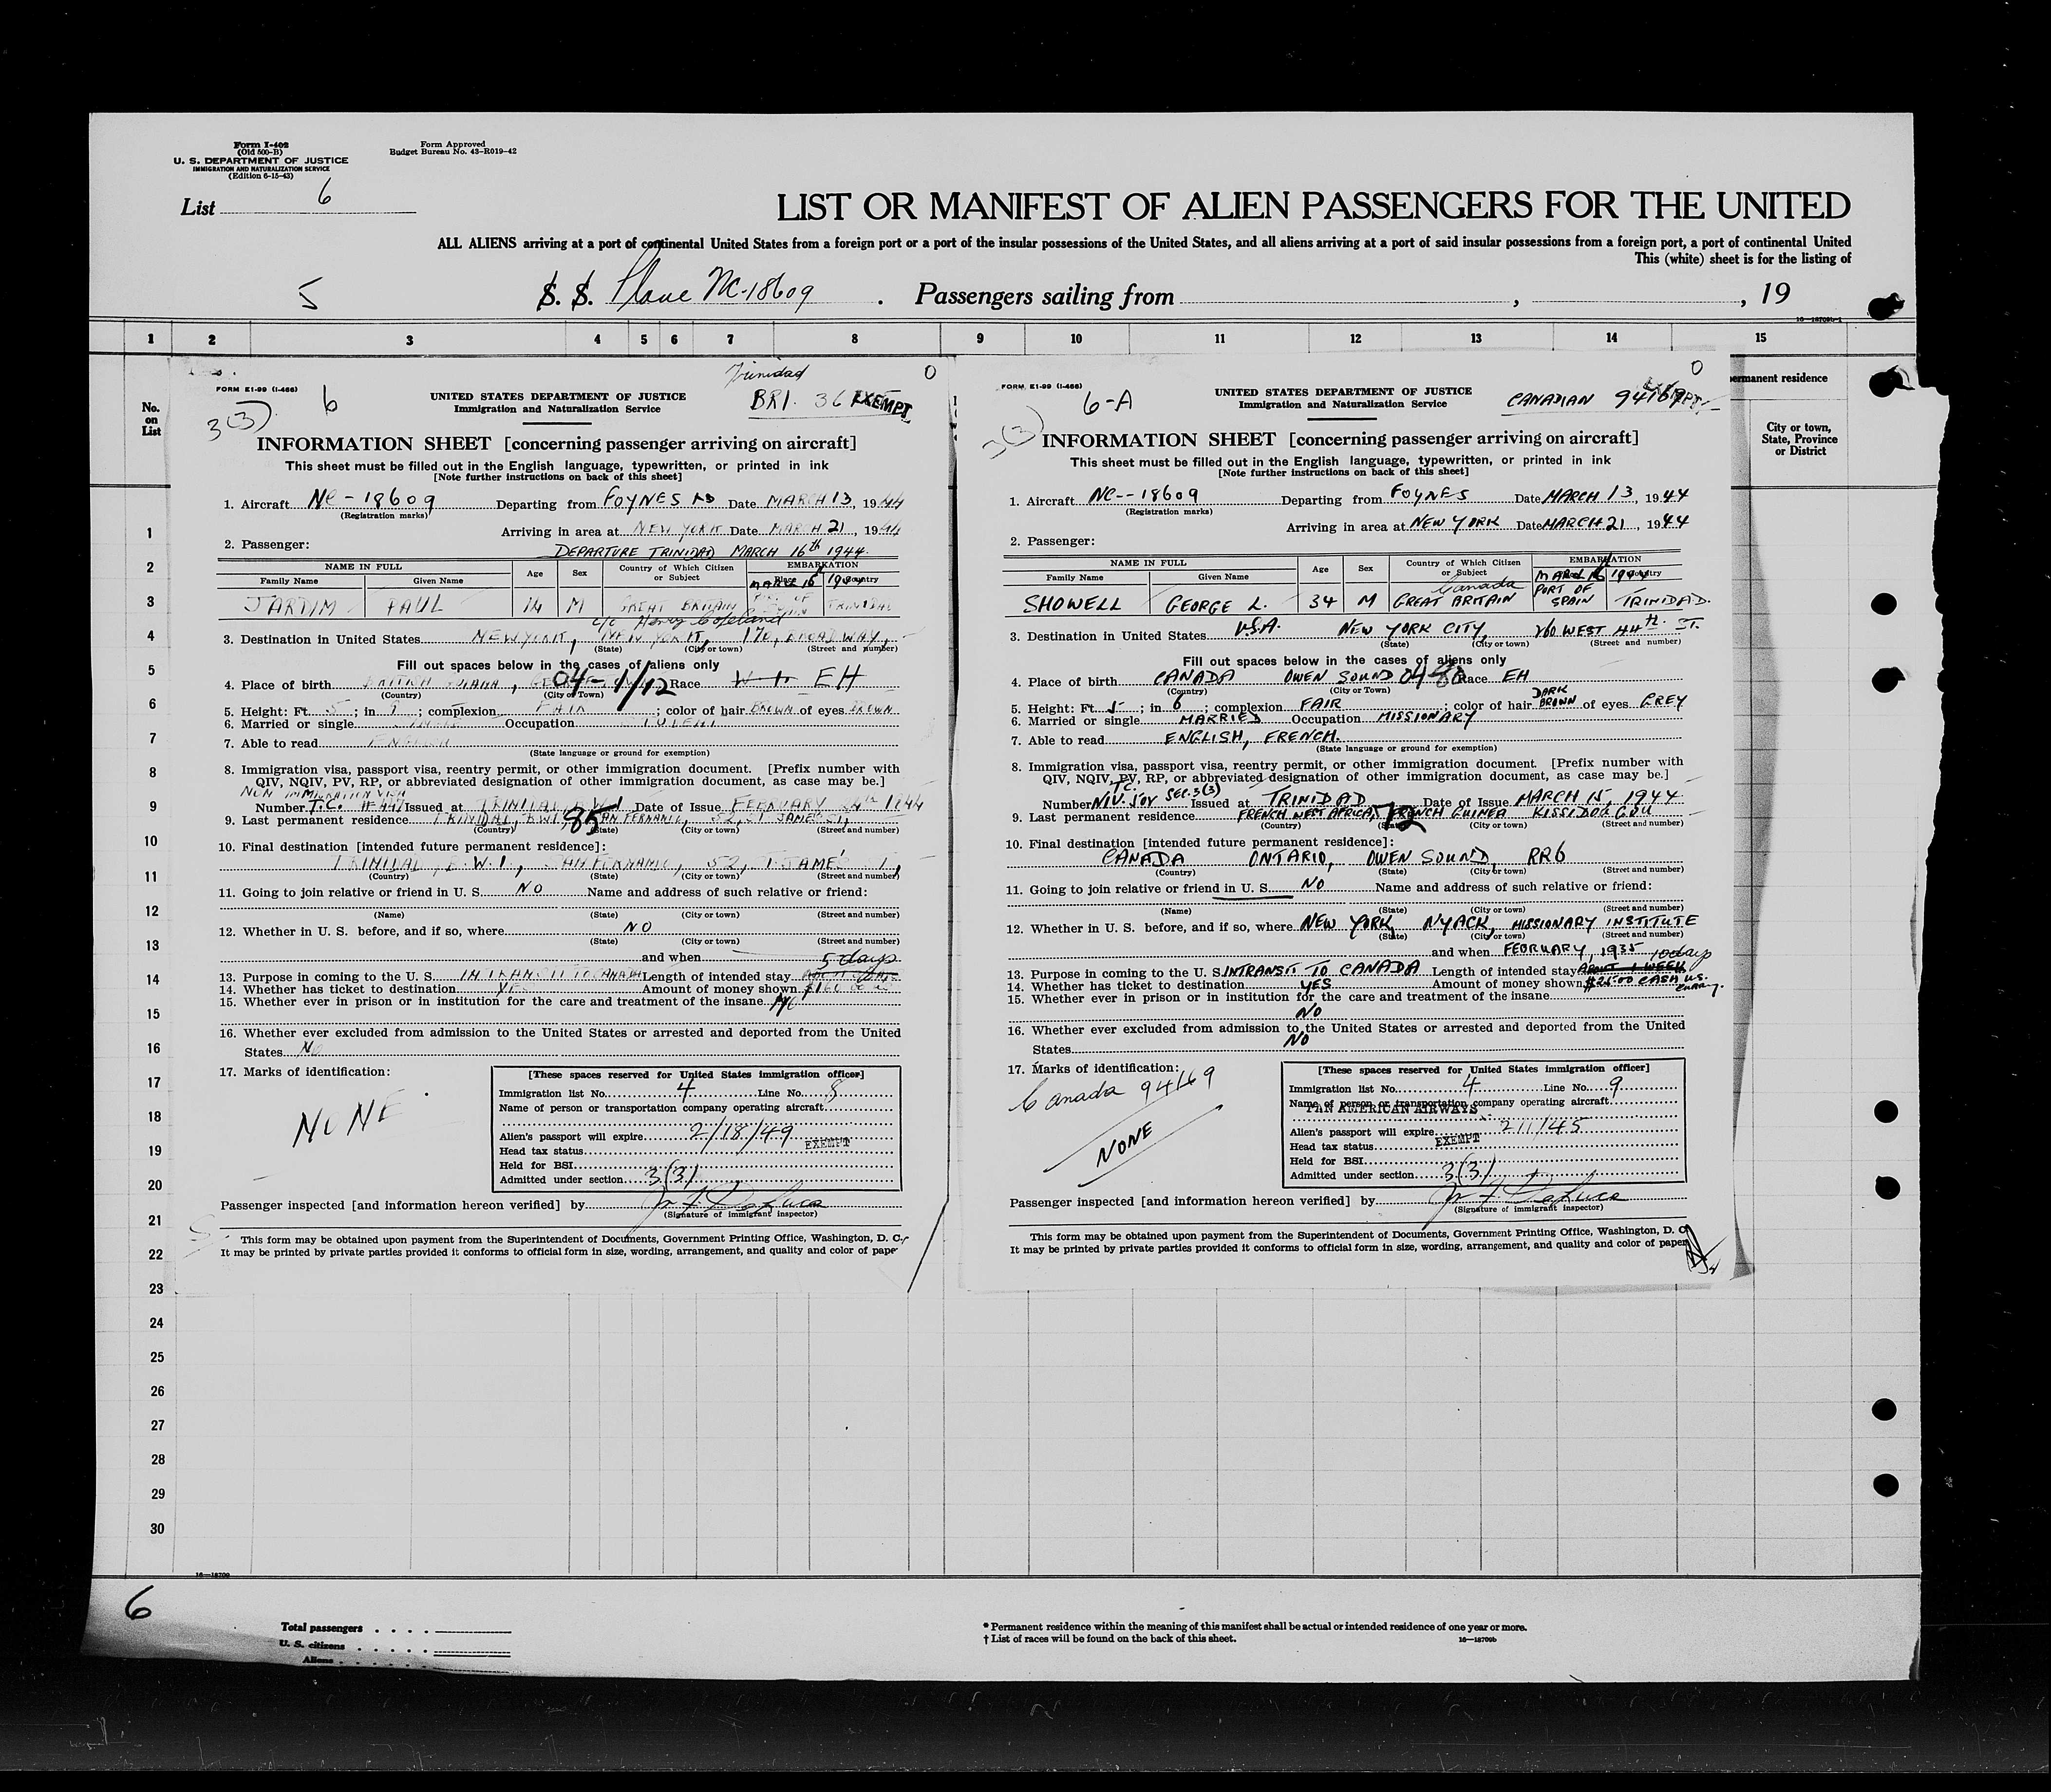 Form I-402
(Old 500-B)
U. S. DEPARTMENT OF JUSTICE
IMMIGRATION AND NATURALIZATION SERVICE
(Edition 6-15-43)
Form Approved
Budget Bureau No. 43-R019-42
List 6
LIST OR MANIFEST OF ALIEN PASSENGERS FOR THE UNITED
ALL ALIENS arriving at a port of continental United States from a foreign port or a port of the insular possessions of the United States, and all aliens arriving at a port of said insular possessions from a foreign port, a port of continental United
This (white) sheet is for the listing of
5 S. S. Plane NC-18609 . Passengers sailing from , , 19
1 2 3 4 5 6 7 8 9 10 11 12 13 14 15
No. on List
permanent residence
City or town, State, Province or District
1
2
3
4
5
6
7
8
9
10
11
12
13
14
15
16
17
18
19
20
21
22
23
24
25
26
27
28
29
30
Trinidad
FORM E1-99 (I-466)
3(3) 6
UNITED STATES DEPARTMENT OF JUSTICE
Immigration and Naturalization Service
BRI. 36 EXEMPT
0
INFORMATION SHEET [concerning passenger arriving on aircraft]
This sheet must be filled out in the English language, typewritten, or printed in ink
[Note further instructions on back of this sheet]
1. Aircraft NC-18609 Departing from FOYNES Date MARCH 13, 1944
(Registration marks)
Arriving in area at NEW YORK Date MARCH 21, 1944
2. Passenger:
DEPARTURE TRINIDAD MARCH 16th 1944.
NAME IN FULL Age Sex Country of Which Citizen or Subject EMBARKATION
Family Name Given Name Place Country
MARCH 16 1944
JARDIM PAUL 14 M GREAT BRITAIN P. OF SPAIN TRINIDAD
c/o Henry Copeland
3. Destination in United States NEW YORK, NEW YORK, 170, BROADWAY,
(State) (City or town) (Street and number)
Fill out spaces below in the cases of aliens only
4. Place of birth BRITISH GUIANA, 04-1/12 Race EH
(Country) (City or Town)
5. Height: Ft. 5; in 7; complexion FAIR; color of hair BROWN of eyes BROWN
6. Married or single Occupation STUDENT
7. Able to read ENGLISH
(State language or ground for exemption)
8. Immigration visa, passport visa, reentry permit, or other immigration document. [Prefix number with
QIV, NQIV, PV, RP, or abbreviated designation of other immigration document, as case may be.]
NON IMMIGRATION VISA
Number T.C. Issued at TRINIDAD B.W.I. Date of Issue FEBRUARY 24th 1944
9. Last permanent residence TRINIDAD, BWI, 85 SAN FERNANDO, 52, ST JAMES ST,
(Country) (State) (City or town) (Street and number)
10. Final destination [intended future permanent residence]:
TRINIDAD, B.W.I., SAN FERNANDO, 52, ST. JAMES ST,
(Country) (State) (City or town) (Street and number)
11. Going to join relative or friend in U. S. NO Name and address of such relative or friend:
(Name) (State) (City or town) (Street and number)
12. Whether in U. S. before, and if so, where NO
(State) (City or town) (Street and number)
and when
5 days
13. Purpose in coming to the U. S. IN TRANSIT TO CANADA Length of intended stay
14. Whether has ticket to destination YES Amount of money shown
15. Whether ever in prison or in institution for the care and treatment of the insane NO
16. Whether ever excluded from admission to the United States or arrested and deported from the United
States NO
17. Marks of identification:
NONE
[These spaces reserved for United States immigration officer]
Immigration list No. 4 Line No. 8
Name of person or transportation company operating aircraft
Alien's passport will expire 2/18/49
Head tax status EXEMPT
Held for BSI
Admitted under section 3(3)
Passenger inspected [and information hereon verified] by
(Signature of immigrant inspector)
This form may be obtained upon payment from the Superintendent of Documents, Government Printing Office, Washington, D. C.
It may be printed by private parties provided it conforms to official form in size, wording, arrangement, and quality and color of paper
FORM E1-99 (I-466)
3(3) 6-A
UNITED STATES DEPARTMENT OF JUSTICE
Immigration and Naturalization Service
CANADIAN 94169
0
INFORMATION SHEET [concerning passenger arriving on aircraft]
This sheet must be filled out in the English language, typewritten, or printed in ink
[Note further instructions on back of this sheet]
1. Aircraft NC--18609 Departing from FOYNES Date MARCH 13, 1944
(Registration marks)
Arriving in area at NEW YORK Date MARCH 21, 1944
2. Passenger:
NAME IN FULL Age Sex Country of Which Citizen or Subject EMBARKATION
Family Name Given Name Country
Canada MARCH 16 1944
SHOWELL GEORGE L. 34 M GREAT BRITAIN PORT OF SPAIN TRINIDAD.
3. Destination in United States U.S.A. NEW YORK CITY, 260 WEST 44th. ST.
(State) (City or town) (Street and number)
Fill out spaces below in the cases of aliens only
4. Place of birth CANADA OWEN SOUND 04-80 Race EH
(Country) (City or Town)
5. Height: Ft. 5; in 6; complexion FAIR; color of hair DARK BROWN of eyes GREY
6. Married or single MARRIED Occupation MISSIONARY
7. Able to read ENGLISH, FRENCH.
(State language or ground for exemption)
8. Immigration visa, passport visa, reentry permit, or other immigration document. [Prefix number with
QIV, NQIV, PV, RP, or abbreviated designation of other immigration document, as case may be.]
T.C.
Number NIV. 504 SEC.3(3) Issued at TRINIDAD Date of Issue MARCH 15, 1944
9. Last permanent residence FRENCH WEST AFRICA, 72 FRENCH GUINEA KISSIDOUGOU
(Country) (State) (City or town) (Street and number)
10. Final destination [intended future permanent residence]:
CANADA ONTARIO, OWEN SOUND, RR6
(Country) (State) (City or town) (Street and number)
11. Going to join relative or friend in U. S. NO Name and address of such relative or friend:
(Name) (State) (City or town) (Street and number)
12. Whether in U. S. before, and if so, where NEW YORK, NYACK, MISSIONARY INSTITUTE
(State) (City or town) (Street and number)
and when FEBRUARY, 1935
10 days
13. Purpose in coming to the U. S. INTRANSIT TO CANADA Length of intended stay ABOUT 1 WEEK
14. Whether has ticket to destination YES Amount of money shown $25.00 CASH U.S.
15. Whether ever in prison or in institution for the care and treatment of the insane
NO
16. Whether ever excluded from admission to the United States or arrested and deported from the United
States NO
17. Marks of identification:
Canada 94169
NONE
[These spaces reserved for United States immigration officer]
Immigration list No. 4 Line No. 9
Name of person or transportation company operating aircraft
PAN AMERICAN AIRWAYS
Alien's passport will expire 2/1/45
Head tax status EXEMPT
Held for BSI
Admitted under section 3(3)
Passenger inspected [and information hereon verified] by
(Signature of immigrant inspector)
This form may be obtained upon payment from the Superintendent of Documents, Government Printing Office, Washington, D. C.
It may be printed by private parties provided it conforms to official form in size, wording, arrangement, and quality and color of paper
16—18709
6
Total passengers
U. S. citizens
Aliens
* Permanent residence within the meaning of this manifest shall be actual or intended residence of one year or more.
† List of races will be found on the back of this sheet.
16—18709b